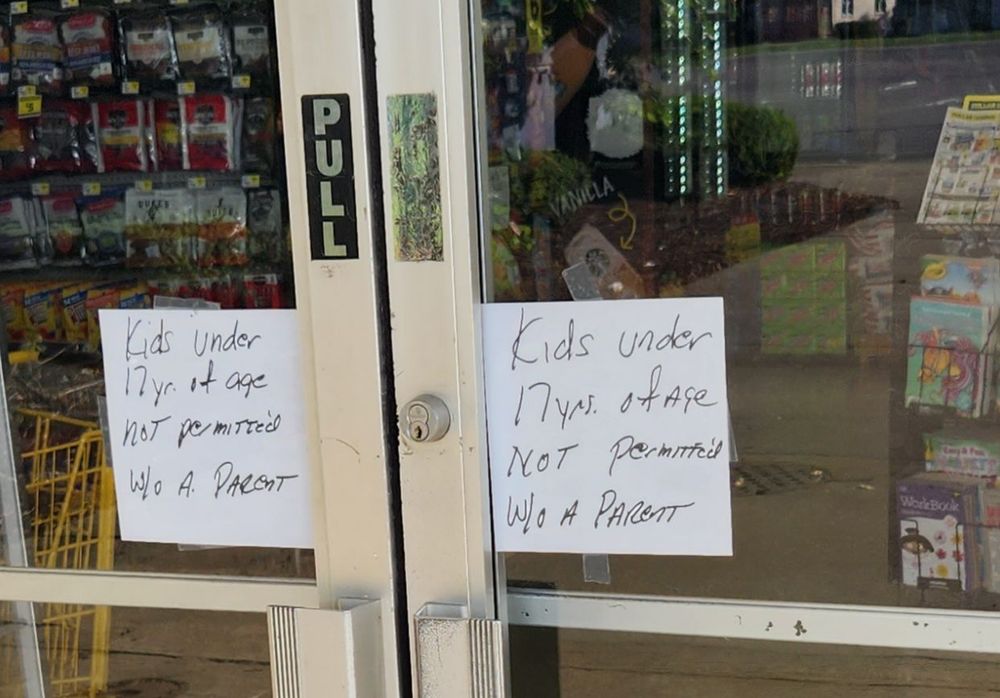 PULL
VANILLA
Kids under
17 yr. of age
NOT permitted
W/O A. PARENT
Kids under
17 yrs. of Age
NOT Permitted
W/O A PARENT
WorkBook